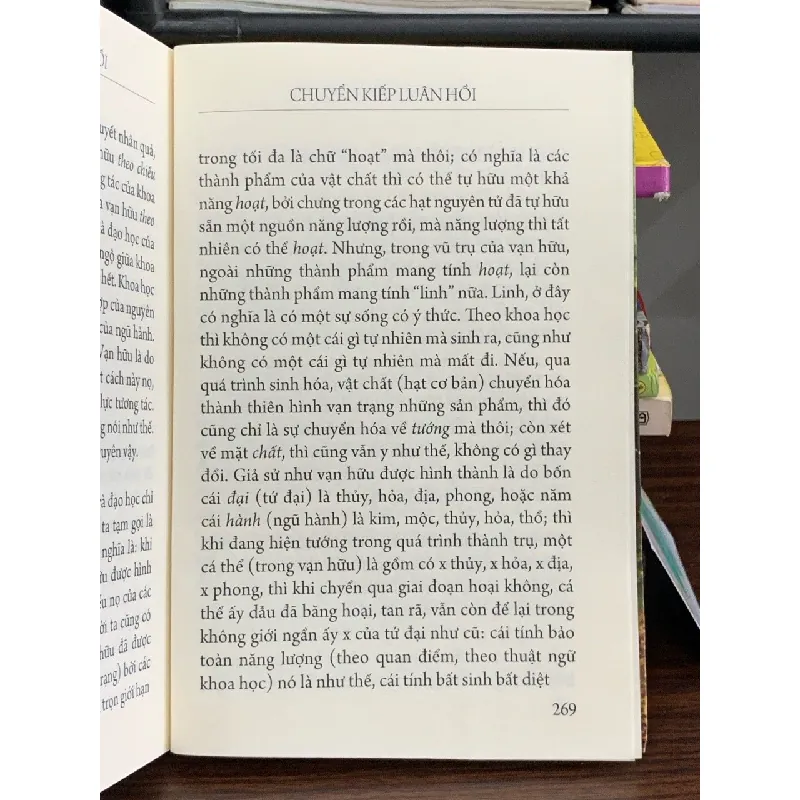 ỒI
uyết nhân quả,
hữu theo chiều
g tác của khoa
vạn hữu theo
à đạo học của
ngộ giữa khoa
hết. Khoa học
ợp của nguyên
của ngũ hành.
Vạn hữu là do
t cách này nọ,
lực tương tác.
g nói như thế.
uyên vậy.
à đạo học chỉ
ta tạm gọi là
nghĩa là: khi
ữu được hình
ếu nọ của các
ời ta cũng có
hữu đã được
rang) bởi các
trọn giới hạn
CHUYỂN KIẾP LUÂN HỒI
trong tối đa là chữ “hoạt” mà thôi; có nghĩa là các
thành phẩm của vật chất thì có thể tự hữu một khả
năng hoạt, bởi chưng trong các hạt nguyên tử đã tự hữu
sẵn một nguồn năng lượng rồi, mà năng lượng thì tất
nhiên có thể hoạt. Nhưng, trong vũ trụ của vạn hữu,
ngoài những thành phẩm mang tính hoạt, lại còn
những thành phẩm mang tính “linh” nữa. Linh, ở đây
có nghĩa là có một sự sống có ý thức. Theo khoa học
thì không có một cái gì tự nhiên mà sinh ra, cũng như
không có một cái gì tự nhiên mà mất đi. Nếu, qua
quá trình sinh hóa, vật chất (hạt cơ bản) chuyển hóa
thành thiên hình vạn trạng những sản phẩm, thì đó
cũng chỉ là sự chuyển hóa về tướng mà thôi; còn xét
về mặt chất, thì cũng vẫn y như thế, không có gì thay
đổi. Giả sử như vạn hữu được hình thành là do bốn
cái đại (tứ đại) là thủy, hỏa, địa, phong, hoặc năm
cái hành (ngũ hành) là kim, mộc, thủy, hỏa, thổ; thì
khi đang hiện tướng trong quá trình thành trụ, một
cá thể (trong vạn hữu) là gồm có x thủy, x hỏa, x địa,
x phong, thì khi chyển qua giai đoạn hoại không, cá
thể ấy dẫu đã băng hoại, tan rã, vẫn còn để lại trong
không giới ngần ấy x của tứ đại như cũ: cái tính bảo
toàn năng lượng (theo quan điểm, theo thuật ngữ
khoa học) nó là như thế, cái tính bất sinh bất diệt
269